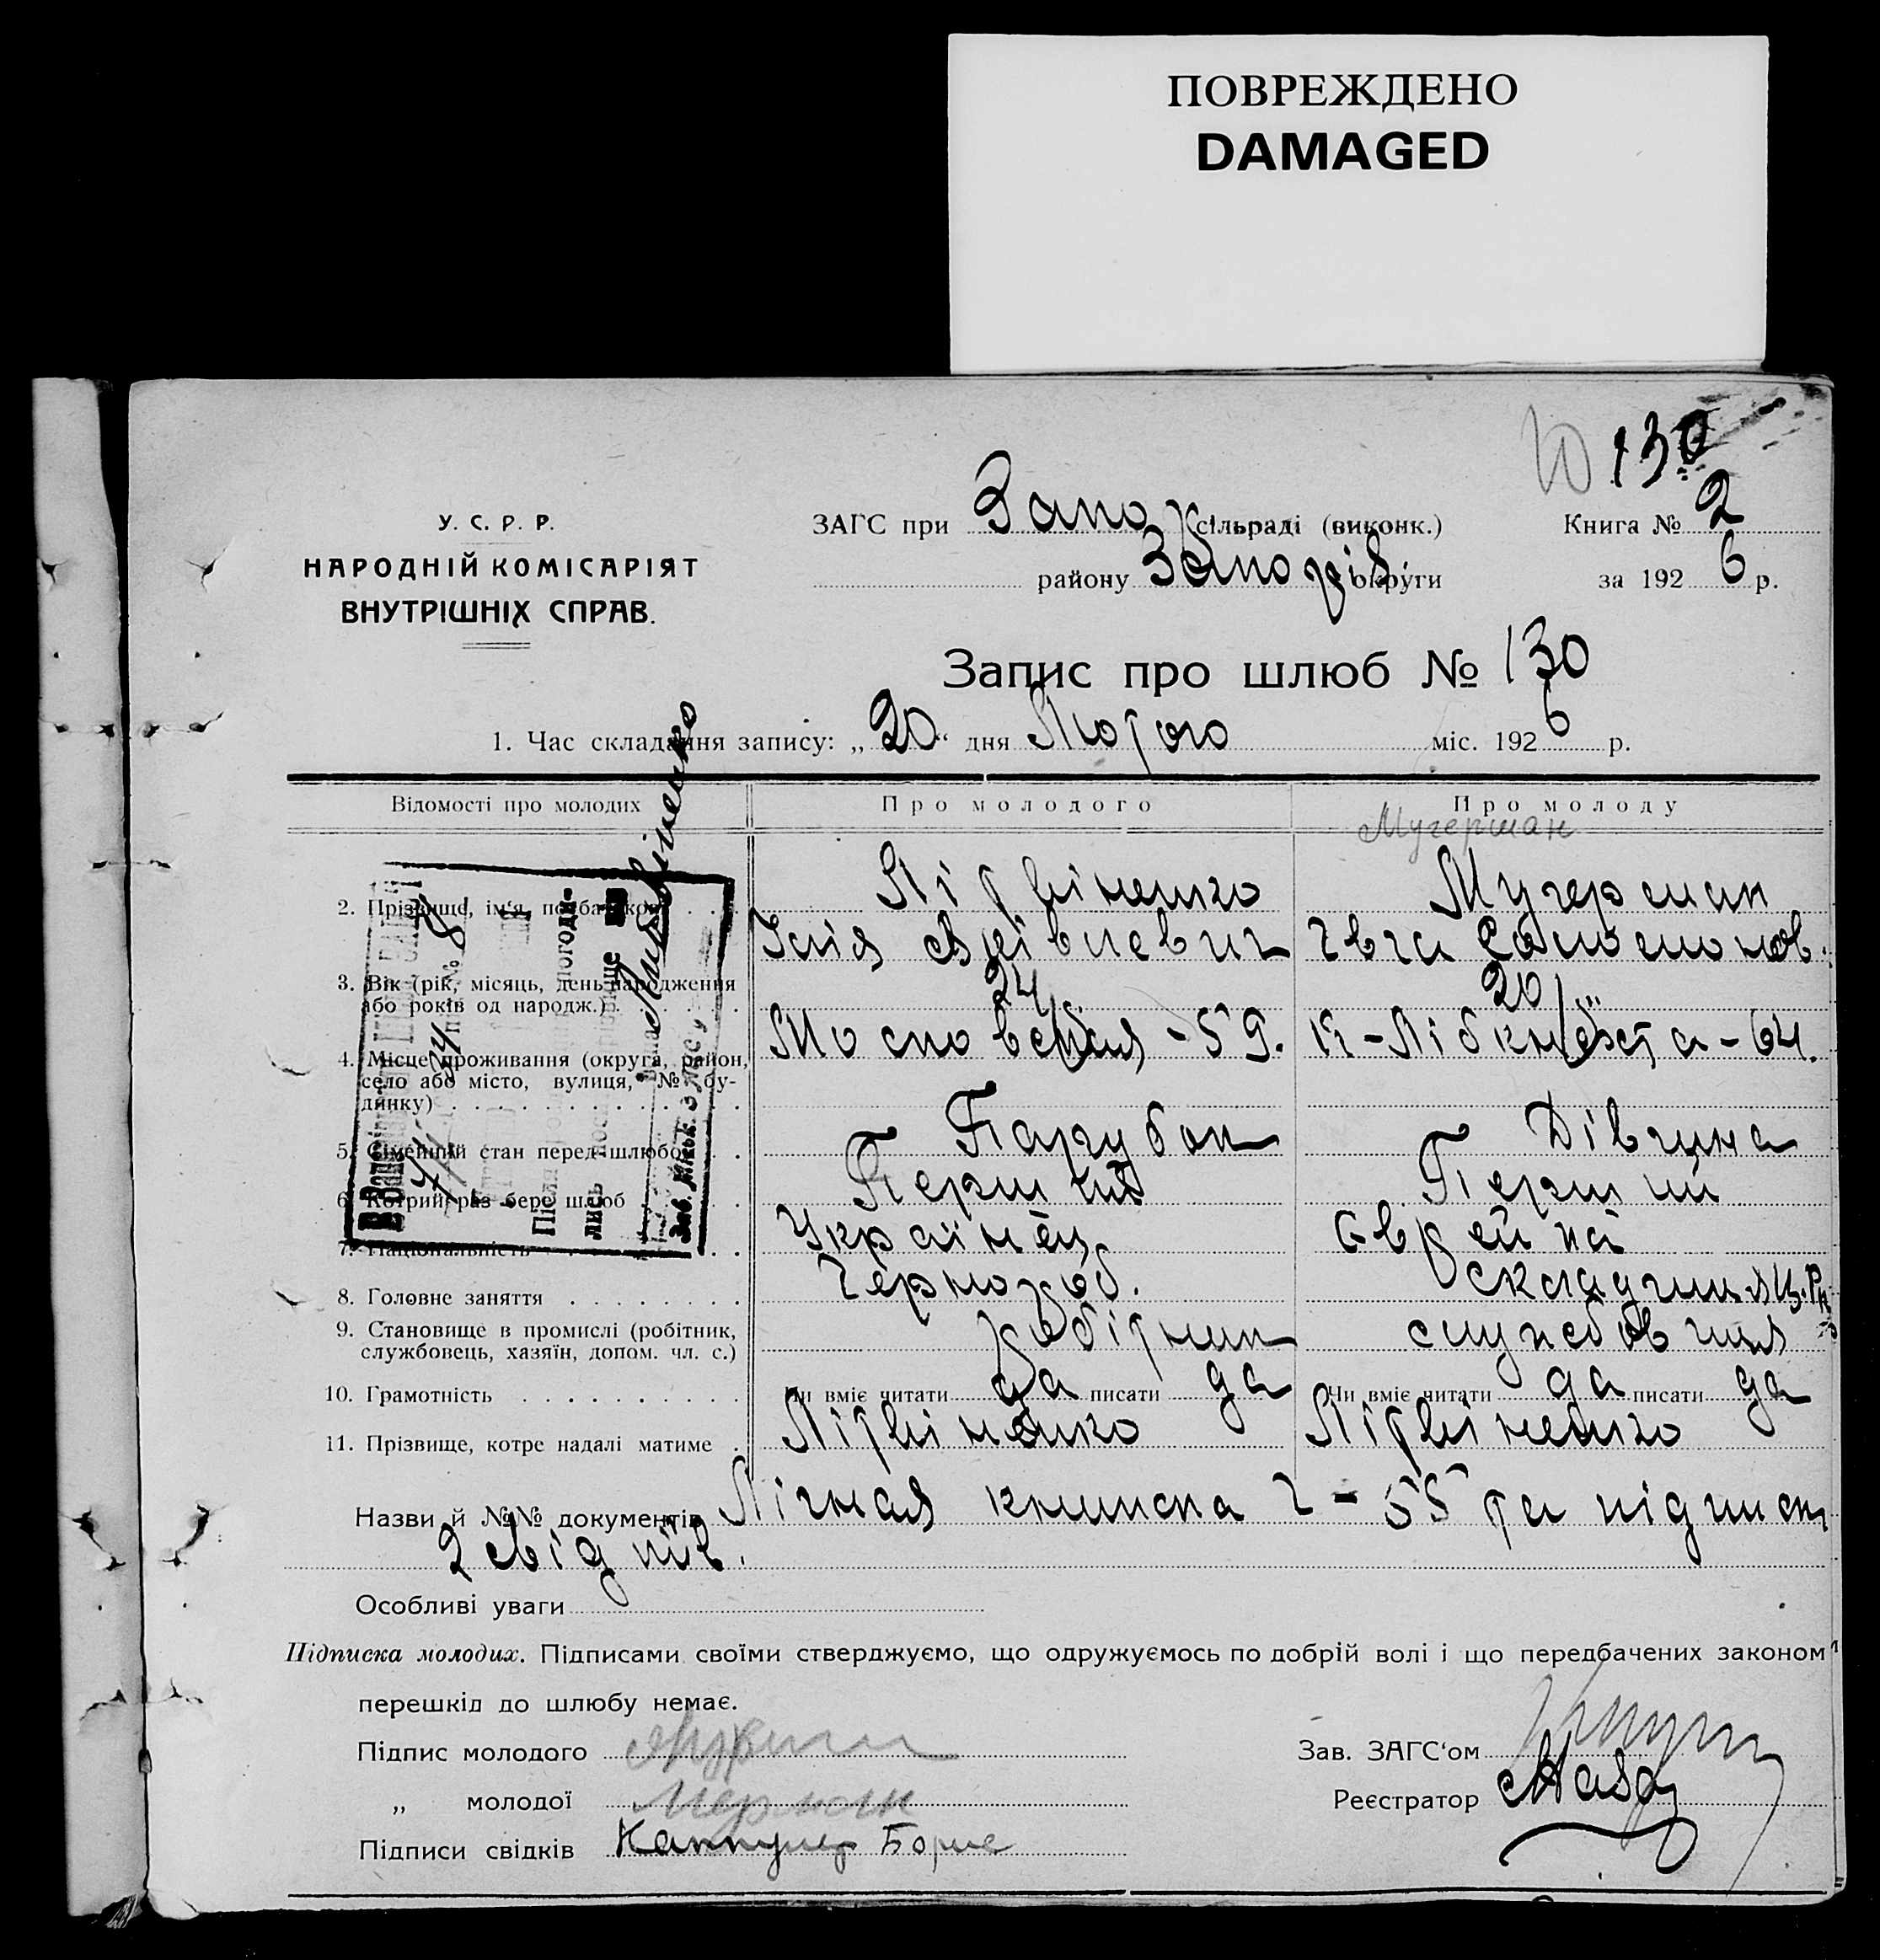 ПОВРЕЖДЕНО
DAMAGED
130
У. С. Р. Р.
НАРОДНІЙ КОМІСАРІЯТ
ВНУТРІШНІХ СПРАВ.
ЗАГС при Запор сільраді (виконк.) Книга № 2
району Запоріз. округи за 1926 р.
Запис про шлюб № 130
1. Час складання запису: „20“ дня Лютого міс. 1926 р.
Відомості про молодих Про молодого Про молоду
Мучерман
2. Прізвище, ім'я, по батькові Літвіненко Мучерман
Ілія
3. Вік (рік, місяць, день народження або років од народж.) 24 20
4. Місце проживання (округа, район, село або місто, вулиця, № будинку) Московская - 59. К-Лібкнехта - 64.
5. Сімейний стан перед шлюбом Парубок Дівчина
6. Котрий раз бере шлюб Перший Перший
7. Національність Українец Єврейка
8. Головне заняття Чорнороб.
9. Становище в промислі (робітник, службовець, хазяїн, допом. чл. с.) робітник службовчиця
10. Грамотність Чи вміє читати да писати да Чи вміє читати да писати да
11. Прізвище, котре надалі матиме Літвіненко Літвіненко
Назви й №№ документів Лічная книжка Ч - 55 та підписи
2 свідків.
Особливі уваги
Підписка молодих. Підписами своїми стверджуємо, що одружуємось по добрій волі і що передбачених законом
перешкід до шлюбу немає.
Підпис молодого Зав. ЗАГС'ом
„ молодої Реєстратор
Підписи свідків Каппулер Борис